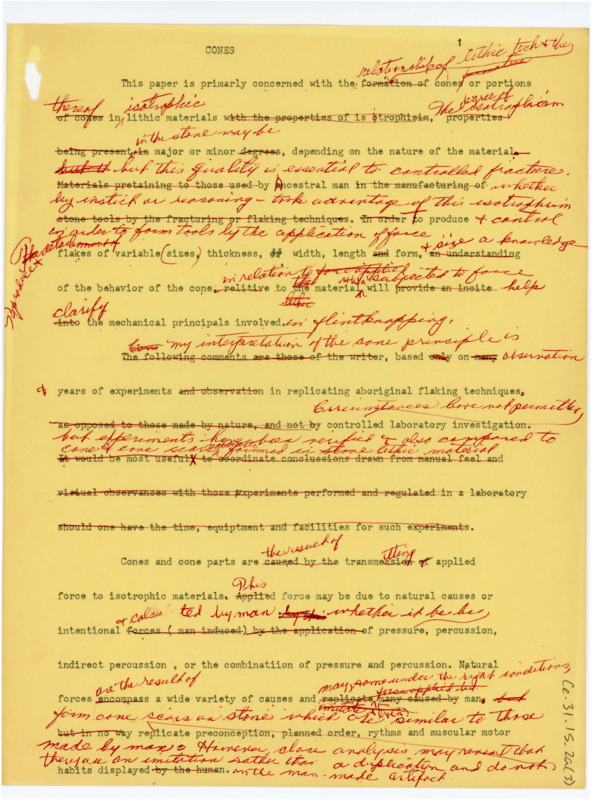 CONES
1
relationship of lithic tech & the
This paper is primarly concerned with the formation of cones or portions
thereof isotrophic The degree of isotrophism
of cones in lithic materials with the properties of is otrophisim, properties
in the stone may be
being present in major or minor degrees, depending on the nature of the material.
but this quality is essential to controlled fracture.
Materials pretaining to those used by Ancestral man in the manufacturing of whether
by instick or reasoning - took advantage of this isotrophism
stone tools by the fracturing or flaking techniques. In order to produce & control
in order to form tools by the application of force
flakes of variable (sizes,) thickness, width, length and form, an understanding
& size a knowledge
in relation to force applied
of the behavior of the cone, relitive to the material will provide an incite help
when subjected to force
clarify
into the mechanical principals involved. in flintknapping.
my interpretation of the cone principle is
The following comments are those of the writer, based only on many observation
& years of experiments and observation in replicating aboriginal flaking techniques,
Circumstances have not permitted
as opposed to those made by nature, and not by controlled laboratory investigation.
but experiments have been verified & also compared to
cone & cone scars formed in stone lithic material
It would be most useful to coordinate conclussions drawn from manual feel and
visiual observances with those experiments performed and regulated in a laboratory
should one have the time, equiptment and facilities for such experiments.
the result of tting
Cones and cone parts are caused by the transmession of applied
This
force to isotropic materials. Applied force may be due to natural causes or
ted by man whether it be by
intentional forces ( man induced) by the application of pressure, percussion,
indirect percussion , or the combinatiion of pressure and percussion. Natural
are the result of may, some under the right conditions,
forces encompass a wide variety of causes and replicate many caused by man, but
form cone scars on stone which are similar to those
but in no way replicate preconception, planned order, rythms and muscular motor
made by man. However, close analysis may reveal that
they are an imitation rather than a duplication and do not
habits displayed by the human. on the man-made artifact.